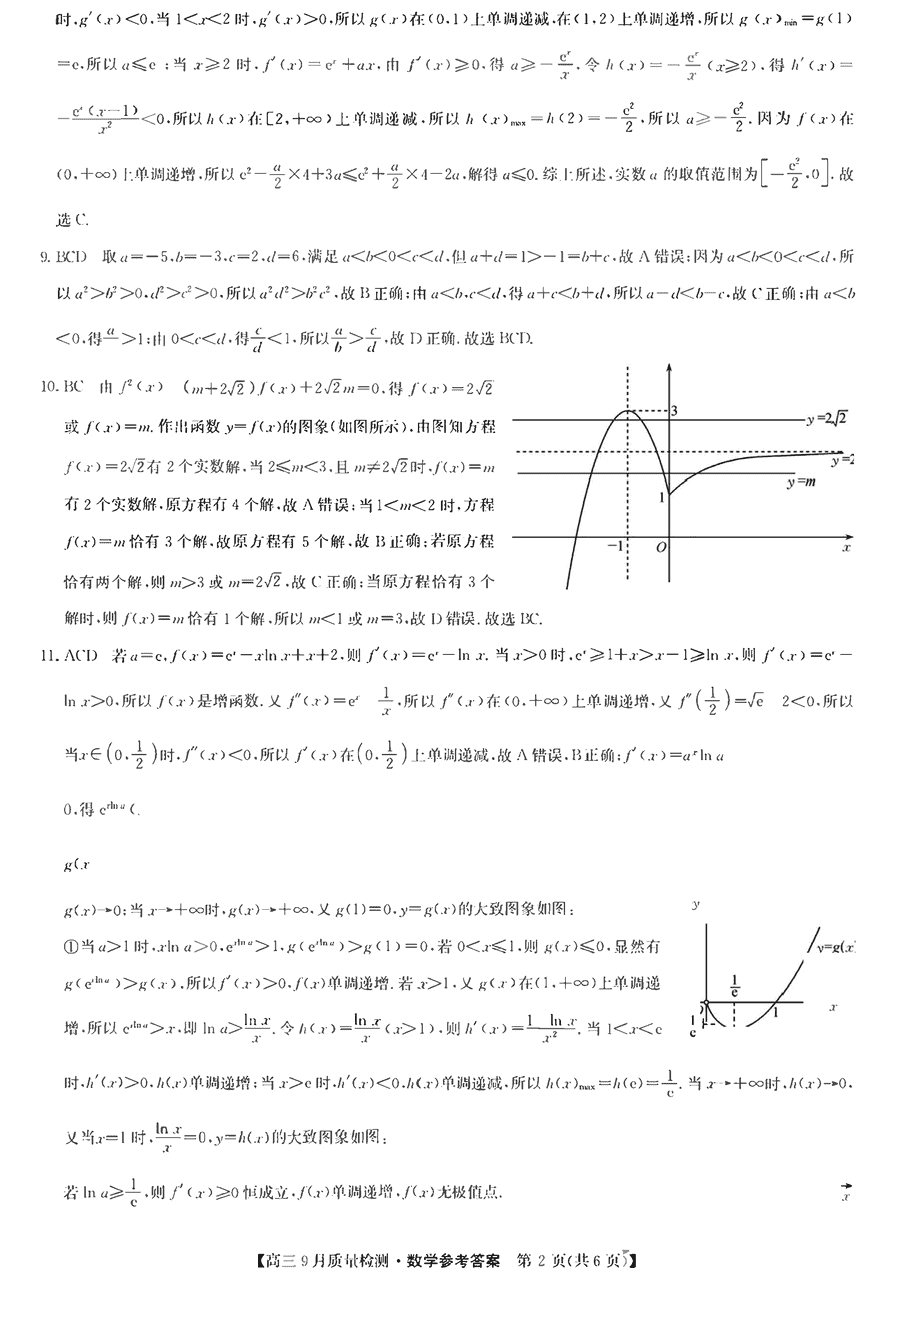 时,g′(x)<0,当1<x<2时,g′(x)>0,所以g(x)在(0,1)上单调递减,在(1,2)上单调递增,所以g(x)min=g(1)
=e,所以a≤e;当x≥2时,f′(x)=eˣ+ax,由f′(x)≥0,得a≥-eˣ/x,令h(x)=-eˣ/x(x≥2),得h′(x)=
-eˣ(x-1)/x²<0,所以h(x)在[2,+∞)上单调递减,所以h(x)max=h(2)=-e²/2,所以a≥-e²/2.因为f(x)在
(0,+∞)上单调递增,所以e²-a/2×4+3a≤e²+a/2×4-2a,解得a≤0.综上所述,实数a的取值范围为[-e²/2,0].故
选C.
9.BCD 取a=-5,b=-3,c=2,d=6,满足a<b<0<c<d,但a+d=1>-1=b+c,故A错误;因为a<b<0<c<d,所
以a²>b²>0,d²>c²>0,所以a²d²>b²c²,故B正确;由a<b,c<d,得a+c<b+d,所以a-d<b-c,故C正确;由a<b
<0,得a/b>1;由0<c<d,得c/d<1,所以a/b>c/d,故D正确.故选BCD.
10.BC 由f²(x) (m+2√2)f(x)+2√2m=0,得f(x)=2√2
或f(x)=m.作出函数y=f(x)的图象(如图所示),由图知方程
f(x)=2√2有2个实数解,当2≤m<3,且m≠2√2时,f(x)=m
有2个实数解,原方程有4个解,故A错误;当1<m<2时,方程
f(x)=m恰有3个解,故原方程有5个解,故B正确;若原方程
恰有两个解,则m>3或m=2√2,故C正确;当原方程恰有3个
解时,则f(x)=m恰有1个解,所以m<1或m=3,故D错误.故选BC.
3
y=2√2
y=2
y=m
1
-1
O
x
11.ACD 若a=e,f(x)=eˣ-xln x+x+2,则f′(x)=eˣ-ln x.当x>0时,eˣ≥1+x>x-1≥ln x,则f′(x)=eˣ-
ln x>0,所以f(x)是增函数.又f″(x)=eˣ 1/x,所以f″(x)在(0,+∞)上单调递增,又f″(1/2)=√e 2<0,所以
当x∈(0,1/2)时,f″(x)<0,所以f′(x)在(0,1/2)上单调递减,故A错误,B正确;f′(x)=aˣln a
0,得e^(xln a)(.
g(x
g(x)→0;当x→+∞时,g(x)→+∞,又g(1)=0,y=g(x)的大致图象如图:
①当a>1时,xln a>0,e^(xln a)>1,g(e^(xln a))>g(1)=0,若0<x≤1,则g(x)≤0,显然有
g(e^(xln a))>g(x),所以f′(x)>0,f(x)单调递增.若x>1,又g(x)在(1,+∞)上单调递
增,所以e^(xln a)>x,即ln a>ln x/x.令h(x)=ln x/x(x>1),则h′(x)=1 ln x/x².当1<x<e
y
y=g(x)
1/e
1
x
1/e
时,h′(x)>0,h(x)单调递增;当x>e时,h′(x)<0,h(x)单调递减,所以h(x)max=h(e)=1/e.当x→+∞时,h(x)→0,
又当x=1时,ln x/x=0,y=h(x)的大致图象如图;
若ln a≥1/e,则f′(x)≥0恒成立,f(x)单调递增,f(x)无极值点.
x
【高三9月质量检测·数学参考答案 第2页(共6页)】